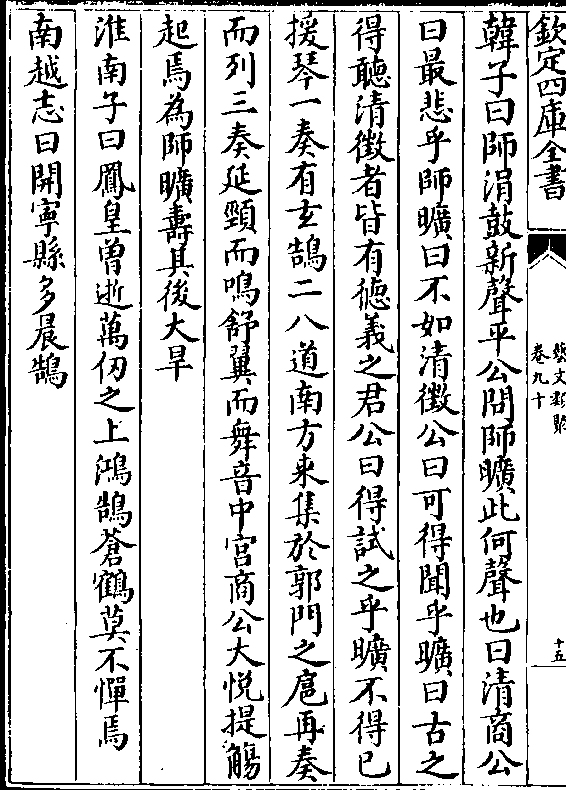 欽定四庫全書
藝文類聚
卷九十
十五
韓子曰師涓鼓新聲平公問師曠此何聲也曰清商公
曰最悲乎師曠曰不如清徵公曰可得聞乎曠曰古之
得聽清徵者皆有德義之君公曰得試之乎曠不得已
援琴一奏有玄鵠二八道南方來集於郭門之扈再奏
而列三奏延頸而鳴舒翼而舞音中宮商公大悅提觴
起焉為師曠壽其後大旱
淮南子曰鳳皇曾逝萬仞之上鴻鵠蒼鶴莫不憚焉
南越志曰開寧縣多晨鵠